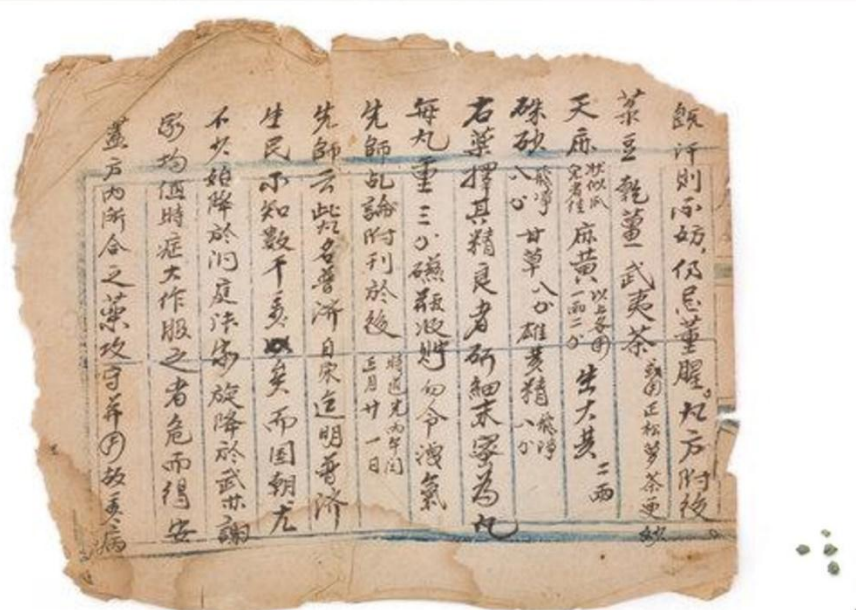 既汗則不妨，仍忌葷腥。丸方附後
菉豆 乾薑 武夷茶 或用正松蘿茶更妙
天麻 狀似瓜完者佳 麻黃 以上各用一兩二分 生大黃 二兩
硃砂 飛淨八分 甘草 八分 雄黃精 飛淨八分
右藥擇其精良者研細末蜜為丸
每丸重三分 收貯勿令洩氣
先師乩諭附刊於後 時道光丙午閏五月廿一日
先師云此丸名普濟自宋迄明普濟
生民不知數千矣而國朝尤
不少始降於洞庭法家旋降於武林謝
家均值時症大作服之者危而得安
蓋方內所合之藥攻守并用故病